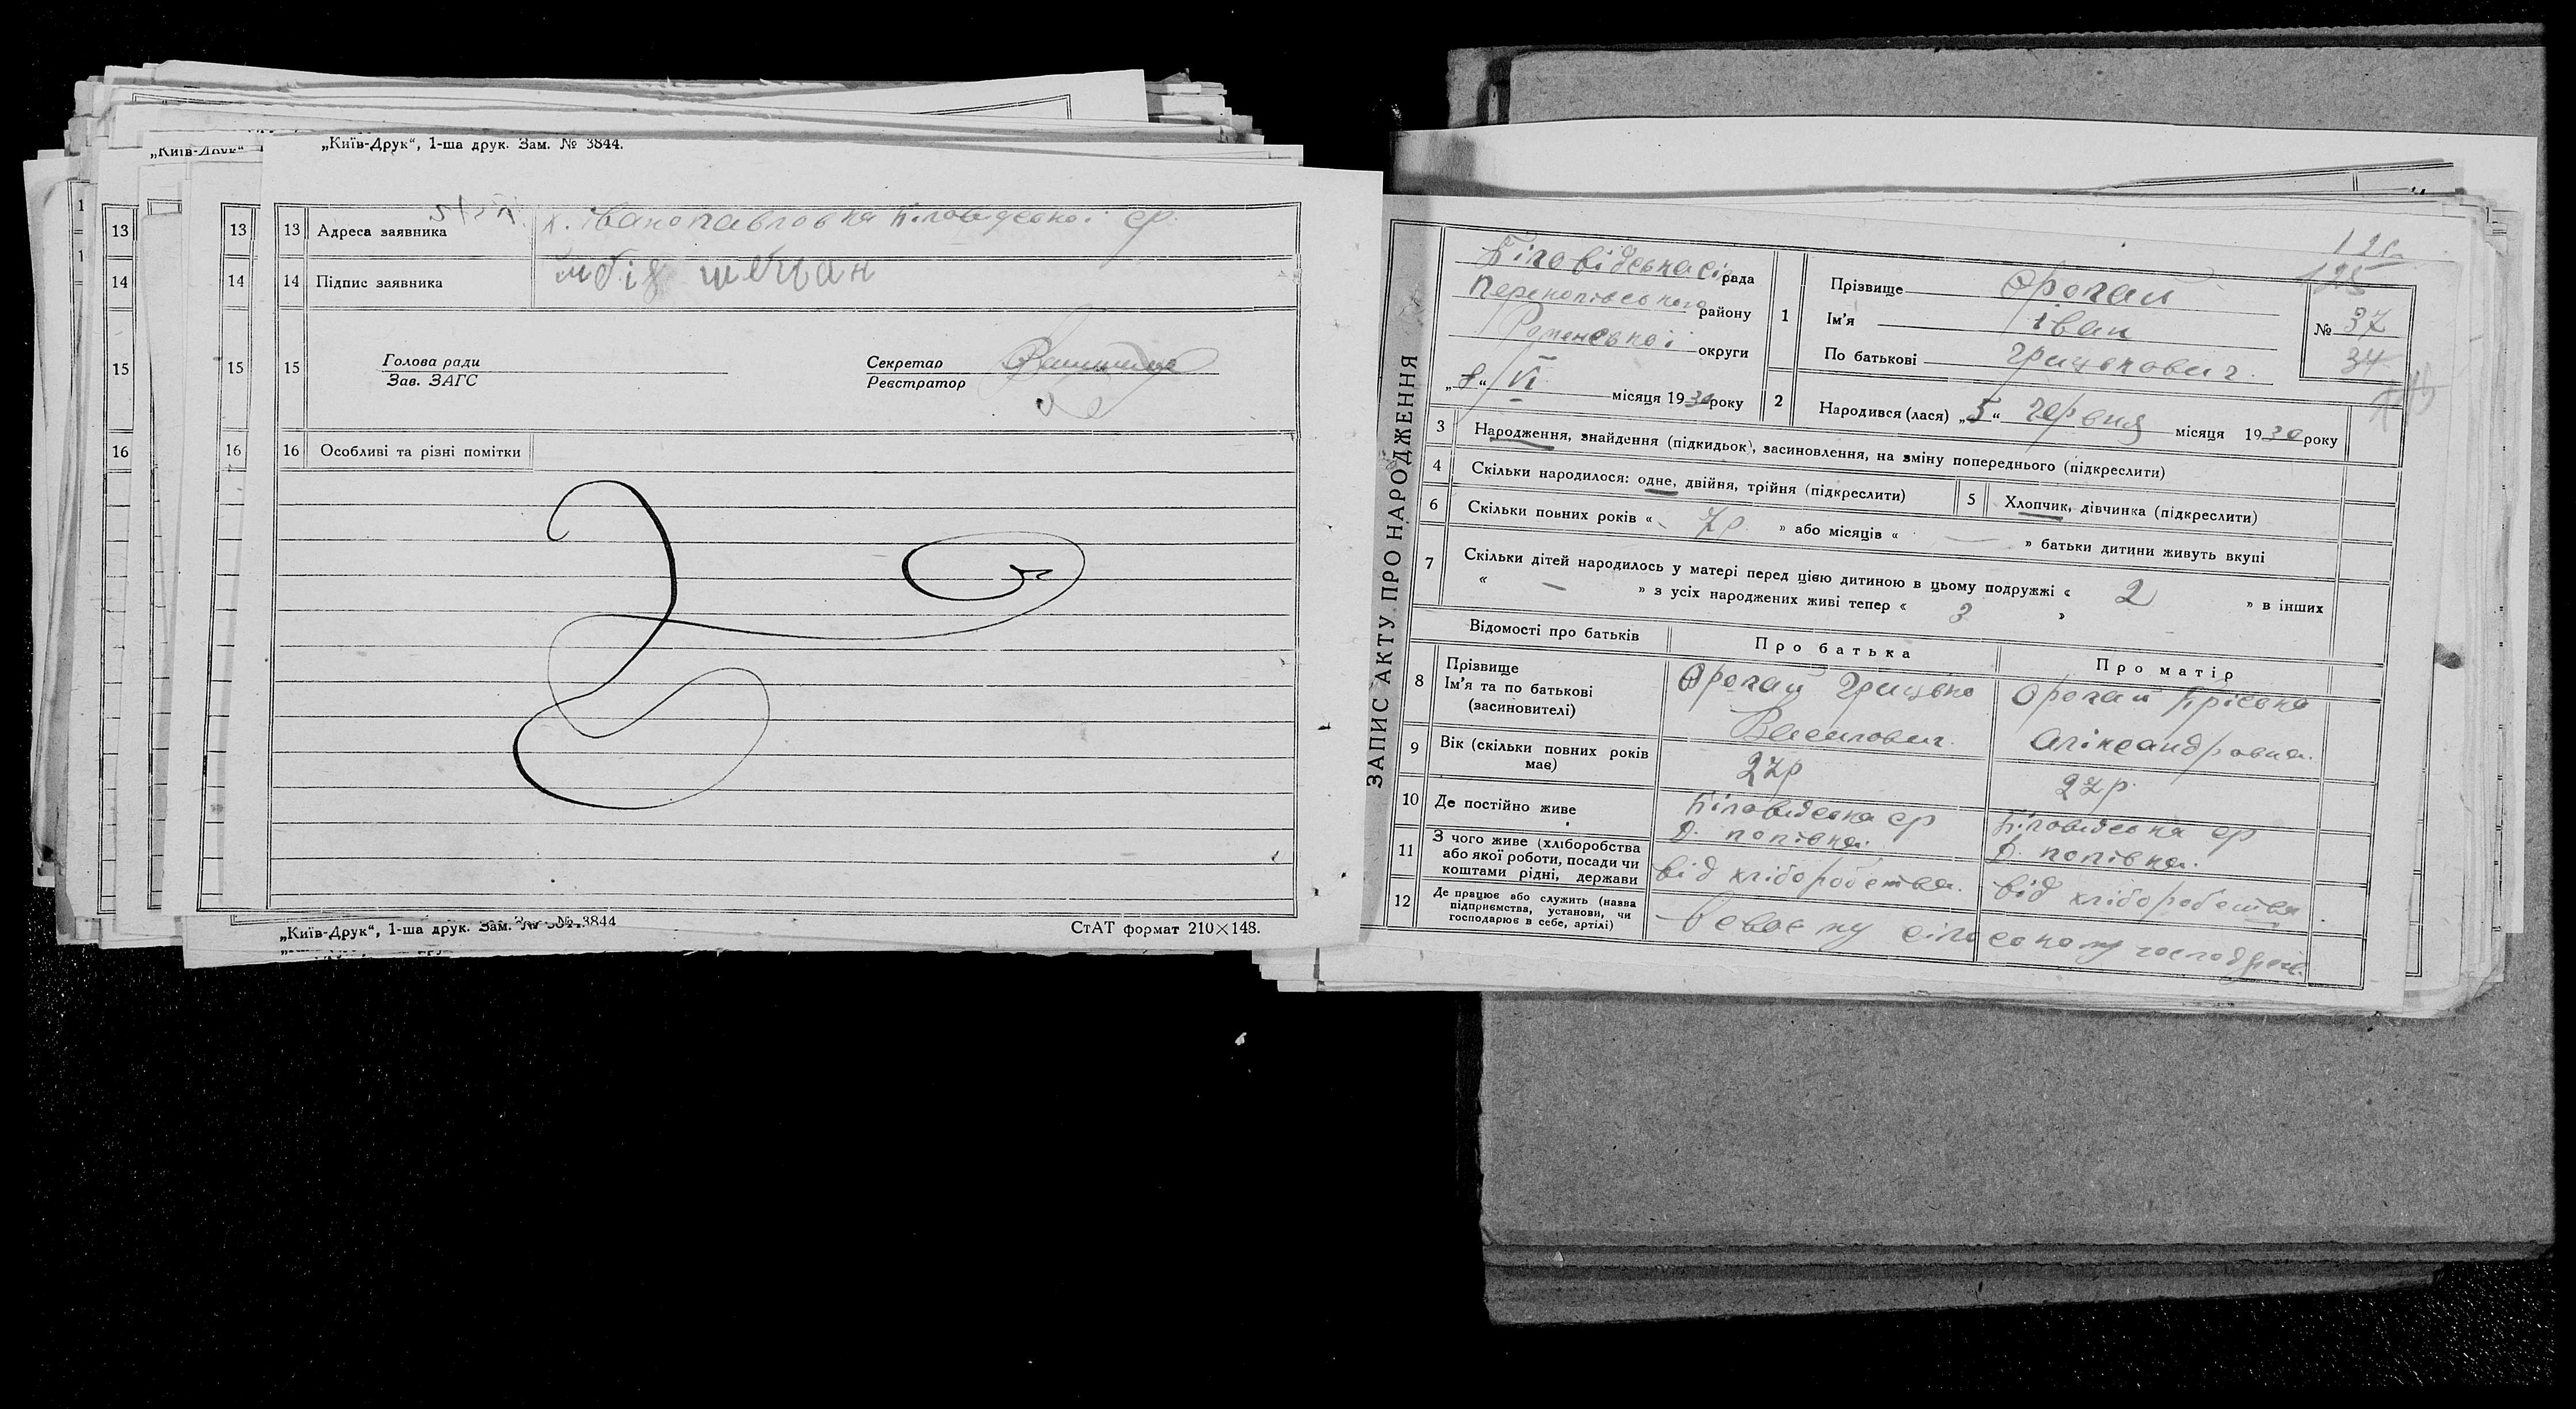 „Київ-Друк“, 1-ша друк. Зам. № 3844.
„Київ-Друк“
13 Адреса заявника х. Іванопавловка Біловідської ср.
14 Підпис заявника
15 Голова ради
Зав. ЗАГС
Секретар
Реєстратор
16 Особливі та різні помітки
„Київ-Друк“, 1-ша друк. Зам. № 3844
СтАТ формат 210×148.
ЗАПИС АКТУ ПРО НАРОДЖЕННЯ
Біловідська сіл рада
Перекопівського району
Роменської округи
„8“ VI місяця 1930 року
125
1 Прізвище Орогай
Ім'я Іван
По батькові Грицькович
№ 37
34
2 Народився (лася) „5“ червня місяця 1930 року
3 Народження, знайдення (підкидьок), засиновлення, на зміну попереднього (підкреслити)
4 Скільки народилося: одне, двійня, трійня (підкреслити)
5 Хлопчик, дівчинка (підкреслити)
6 Скільки повних років « 7 р. » або місяців « — » батьки дитини живуть вкупі
7 Скільки дітей народилось у матері перед цією дитиною в цьому подружжі « 2 » в інших
« — » з усіх народжених живі тепер « 3 »
Відомості про батьків
Про батька
Про матір
8 Прізвище
Ім'я та по батькові
(засиновителі)
Орогай Грицько
Василович
Орогай
Оліксандровна.
9 Вік (скільки повних років має)
27р
27р.
10 Де постійно живе
Біловидська ср
Д. попівка.
Біловидська ср
Д. попівка.
11 З чого живе (хліборобства
або якої роботи, посади чи
коштами рідні, держави
від хліборобства.
від хліборобства
12 Де працює або служить (назва
підприємства, установи, чи
господарює в себе, артілі)
в своєму сільському господрстві.